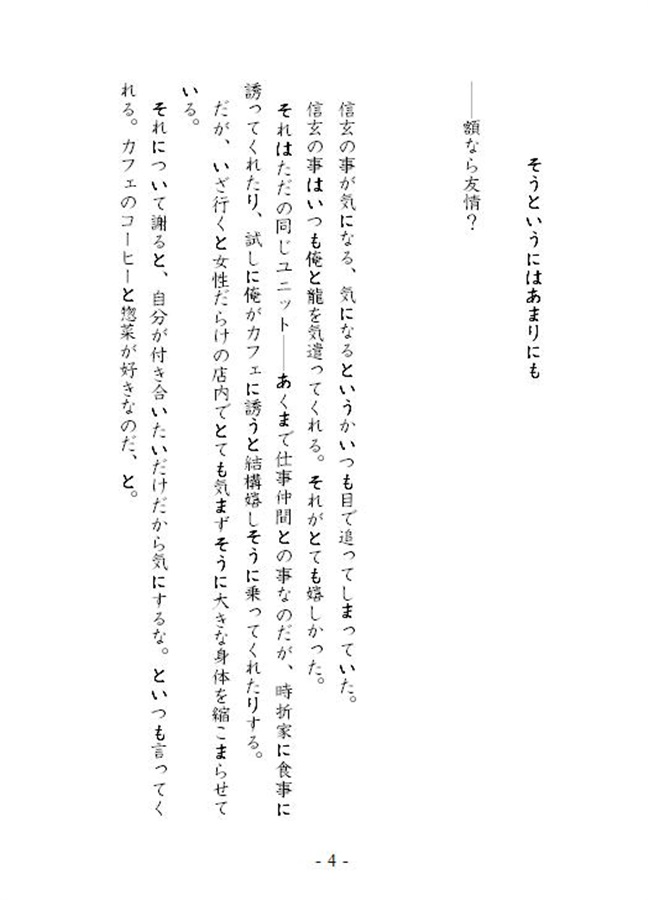 そうというにはあまりにも
――額なら友情？
信玄の事が気になる、気になるというかいつも目で追ってしまっていた。
信玄の事はいつも俺と龍を気遣ってくれる。それがとても嬉しかった。
それはただの同じユニット――あくまで仕事仲間との事なのだが、時折家に食事に
誘ってくれたり、試しに俺がカフェに誘うと結構嬉しそうに乗ってくれたりする。
だが、いざ行くと女性だらけの店内でとても気まずそうに大きな身体を縮こまらせて
いる。
それについて謝ると、自分が付き合いたいだけだから気にするな。といつも言ってく
れる。カフェのコーヒーと惣菜が好きなのだ、と。
- 4 -